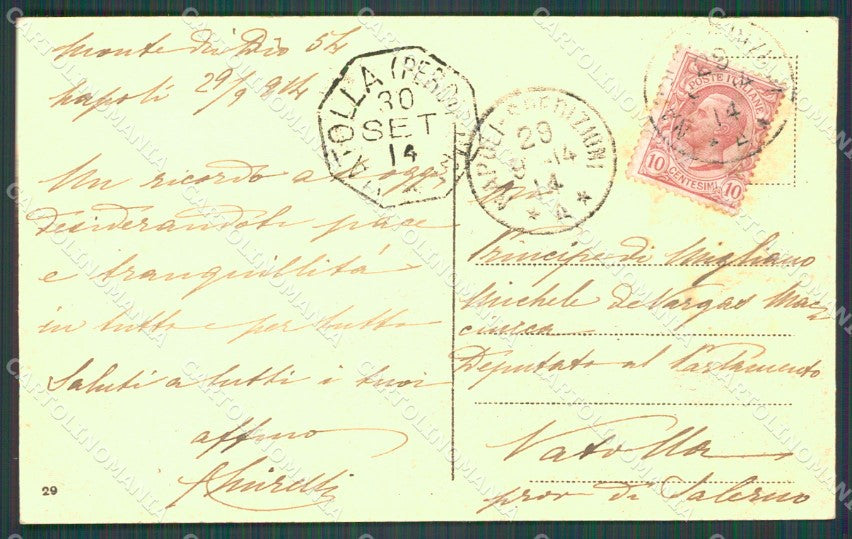 Monte di Dio 54
Napoli 29/9 914
Un ricordo a oggi
desiderandoti pace
e tranquillità
in tutto e per tutto
Saluti a tutti i tuoi
affmo
29
VATOLLA (PERDIFUMO)
30
SET
14
NAPOLI-SPEDIZIONI
29
14
* 4 *
POSTE ITALIANE
10
CENTESIMI
10
29
14
Principe di Migliano
Michele de Vargas Mac
ciucca
Deputato al Parlamento
Vatolla
prov di Salerno
CARTOLINOMANIA